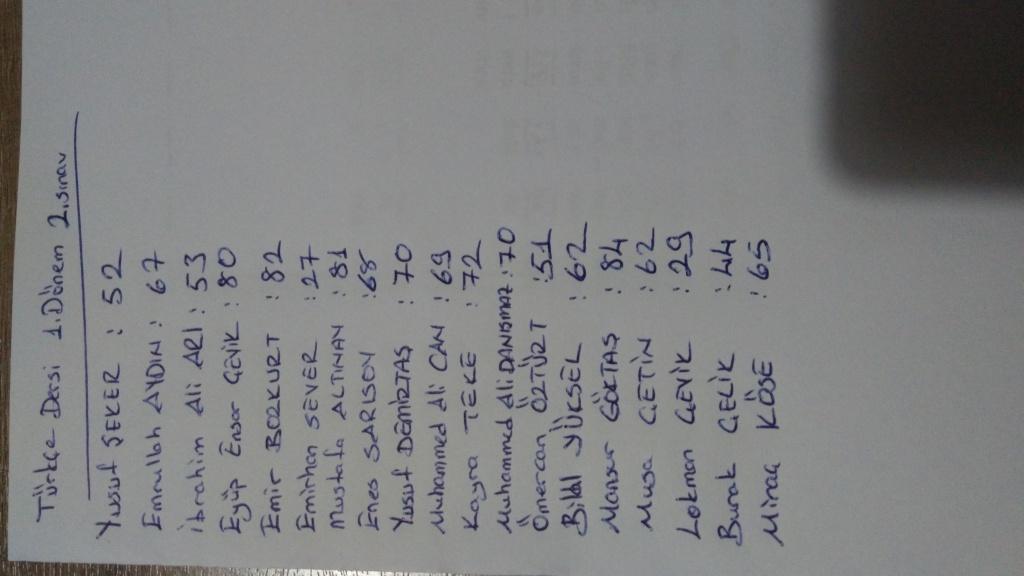 Türkçe Dersi 1.Dönem 2.sınav
Yusuf ŞEKER : 52
Emrullah AYDIN : 67
İbrahim Ali ARI : 53
Eyüp Ensar ÇEVİK : 80
Emir BOZKURT : 82
Emirhan SEVER : 27
Mustafa ALTINAY : 81
Enes SARISOY : 68
Yusuf DEMİRTAŞ : 70
Muhammed Ali CAN : 69
Kayra TEKE : 72
Muhammed Ali DANIŞMAZ : 70
Ömercan ÖZTÜRT : 51
Bilal YÜKSEL : 62
Mansur GÖKTAŞ : 84
Musa ÇETİN : 62
Lokman ÇEVİK : 29
Burak ÇELİK : 44
Mirac KÖSE : 65